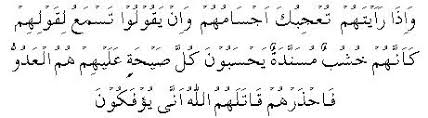 وَاِذَا رَاَيْتَهُمْ تُعْجِبُكَ اَجْسَامُهُمْ وَاِنْ يَقُوْلُوْا تَسْمَعْ لِقَوْلِهِمْ
كَاَنَّهُمْ خُشُبٌ مُسَنَّدَةٌ يَحْسَبُوْنَ كُلَّ صَيْحَةٍ عَلَيْهِمْ هُمُ الْعَدُوُّ
فَاحْذَرْهُمْ قَاتَلَهُمُ اللّٰهُ اَنّٰى يُؤْفَكُوْنَ